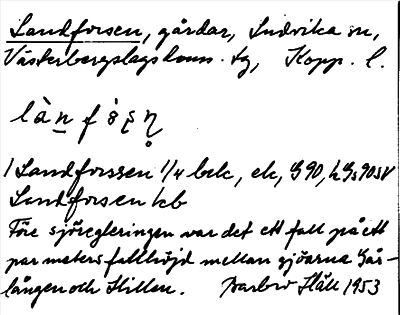 Landforsen, gårdar, Ludvika sn,
Västerbergslags doms. tg, Kopp. l.
làn fòşn̥
1 Landforssen 1/4 bek, ek, G90, hGs90SV
Landforsen kb
Före sjöregleringen var det ett fall på ett
par meters fallhöjd mellan sjöarna Går-
lången och Hillen. Barbro Häll 1953